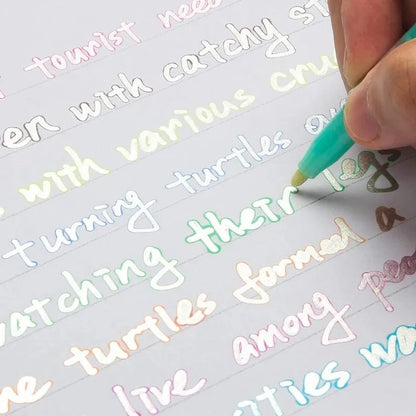 tourist need
en with catchy st
with various cru
turning turtles ou
watching their legs
e turtles formed a
live among peo
ities wa